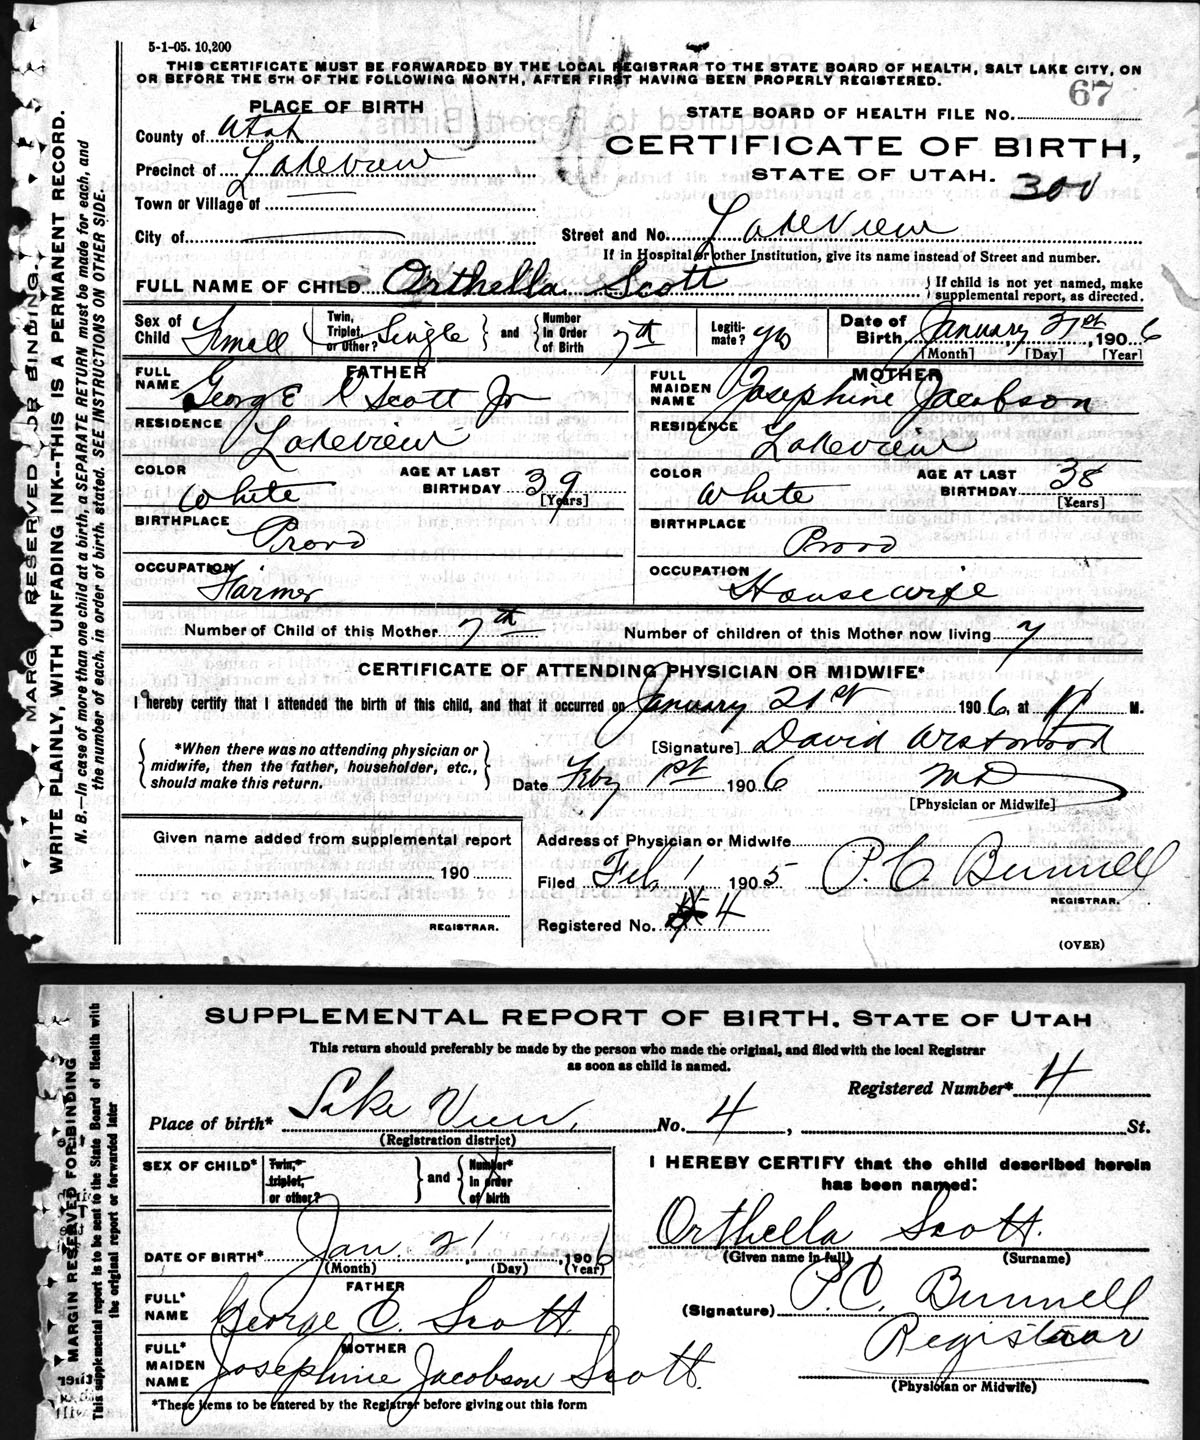 5-1-05. 10,200
THIS CERTIFICATE MUST BE FORWARDED BY THE LOCAL REGISTRAR TO THE STATE BOARD OF HEALTH, SALT LAKE CITY, ON
OR BEFORE THE 5TH OF THE FOLLOWING MONTH, AFTER FIRST HAVING BEEN PROPERLY REGISTERED.
67
PLACE OF BIRTH
STATE BOARD OF HEALTH FILE NO.
County of Utah
CERTIFICATE OF BIRTH,
Precinct of Lakeview
STATE OF UTAH.
300
Town or Village of
City of
Street and No. Lakeview
If in Hospital or other Institution, give its name instead of Street and number.
FULL NAME OF CHILD Orthella Scott
If child is not yet named, make supplemental report, as directed.
Sex of Child Femall
Twin, Triplet, or Other? Single and Number In Order of Birth 7th
Legitimate? yes
Date of Birth January 21st, 1906
[Month] [Day] [Year]
FATHER
FULL NAME George Scott Jr
RESIDENCE Lakeview
COLOR White
AGE AT LAST BIRTHDAY 39
[Years]
BIRTHPLACE Provo
OCCUPATION Farmer
MOTHER
FULL MAIDEN NAME Josephine Jacobson
RESIDENCE Lakeview
COLOR White
AGE AT LAST BIRTHDAY 38
[Years]
BIRTHPLACE Provo
OCCUPATION Housewife
Number of Child of this Mother 7th
Number of children of this Mother now living 7
CERTIFICATE OF ATTENDING PHYSICIAN OR MIDWIFE*
I hereby certify that I attended the birth of this child, and that it occurred on January 21st 1906, at M.
*When there was no attending physician or
midwife, then the father, householder, etc.,
should make this return.
[Signature] David Westwood
Date Feby 1st 1906 MD
[Physician or Midwife]
Given name added from supplemental report
190
REGISTRAR.
Address of Physician or Midwife
Filed Feb, 1 1905 P. C. Bunnell
REGISTRAR.
Registered No. 4
(OVER)
MARG RESERVED FOR BINDING.
WRITE PLAINLY, WITH UNFADING INK--THIS IS A PERMANENT RECORD.
N. B.—In case of more than one child at a birth, a SEPARATE RETURN must be made for each, and
the number of each, in order of birth, stated. SEE INSTRUCTIONS ON OTHER SIDE.
SUPPLEMENTAL REPORT OF BIRTH. STATE OF UTAH
This return should preferably be made by the person who made the original, and filed with the local Registrar
as soon as child is named.
Registered Number* 4
Place of birth* Lake View, No. 4, St.
(Registration district)
SEX OF CHILD*
Twin,* triplet, or other? and Number* in order of birth
DATE OF BIRTH* Jan. 21, 1906
(Month) (Day) (Year)
FATHER
FULL* NAME George C. Scott.
MOTHER
FULL* MAIDEN NAME Josephine Jacobson Scott.
*These items to be entered by the Registrar before giving out this form
I HEREBY CERTIFY that the child described herein
has been named:
Orthella Scott.
(Given name in full) (Surname)
(Signature) P.C. Bunnell
Registrar
(Physician or Midwife)
MARGIN RESERVED FOR BINDING
This supplemental report is to be sent to the State Board of Health with
the original report or forwarded later